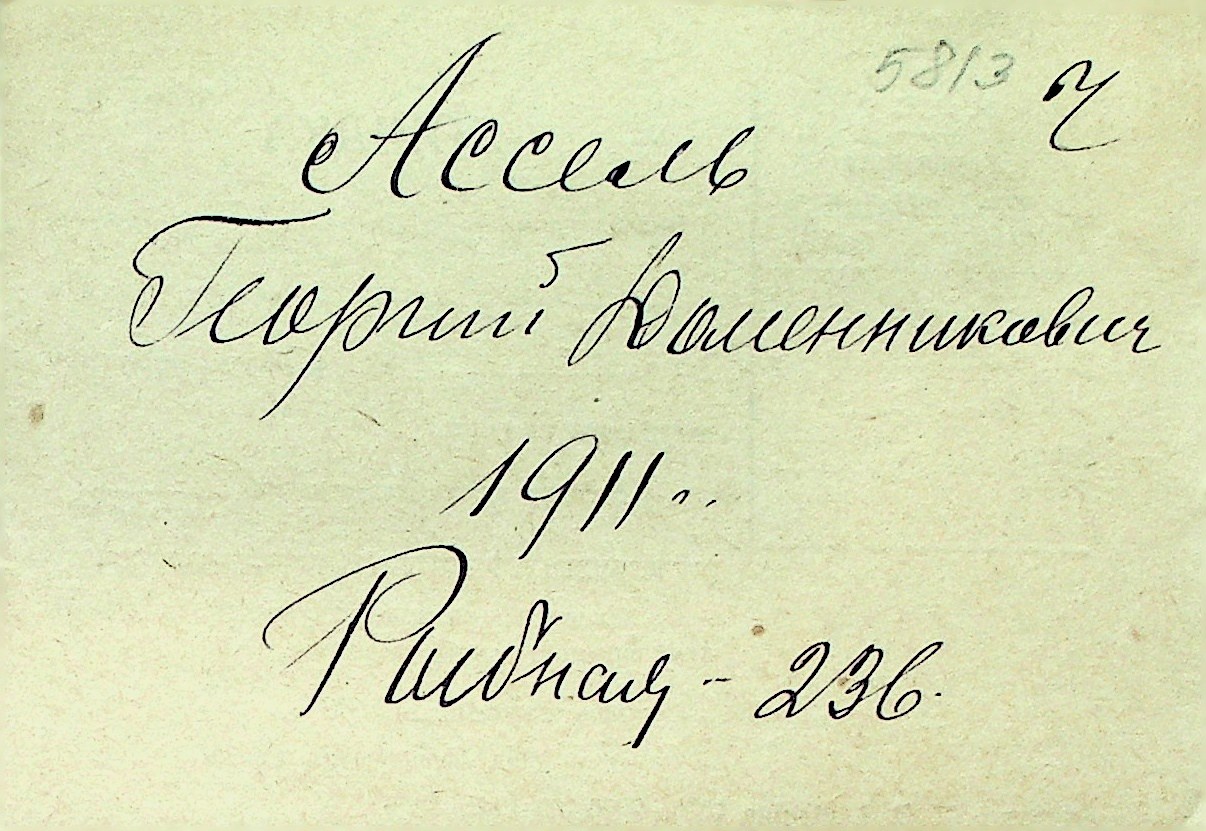 5813 Ч
Ассель
Георгий Доменникович
1911..
Рыбная - 236.